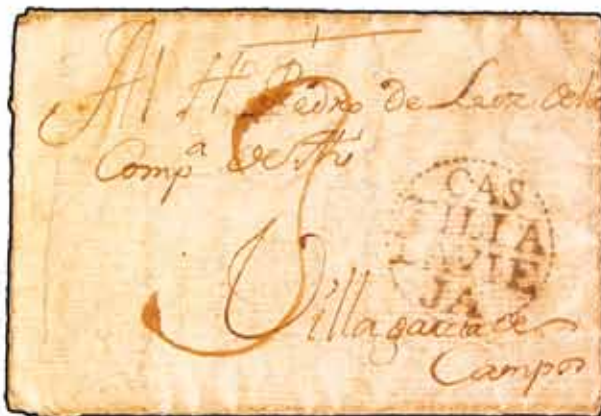 Al H.º Pedro de Leoz de la
Comp.ª de Jhs
9
CAS
TILLA
LAVIE
JA
Villagarcia de
Campos